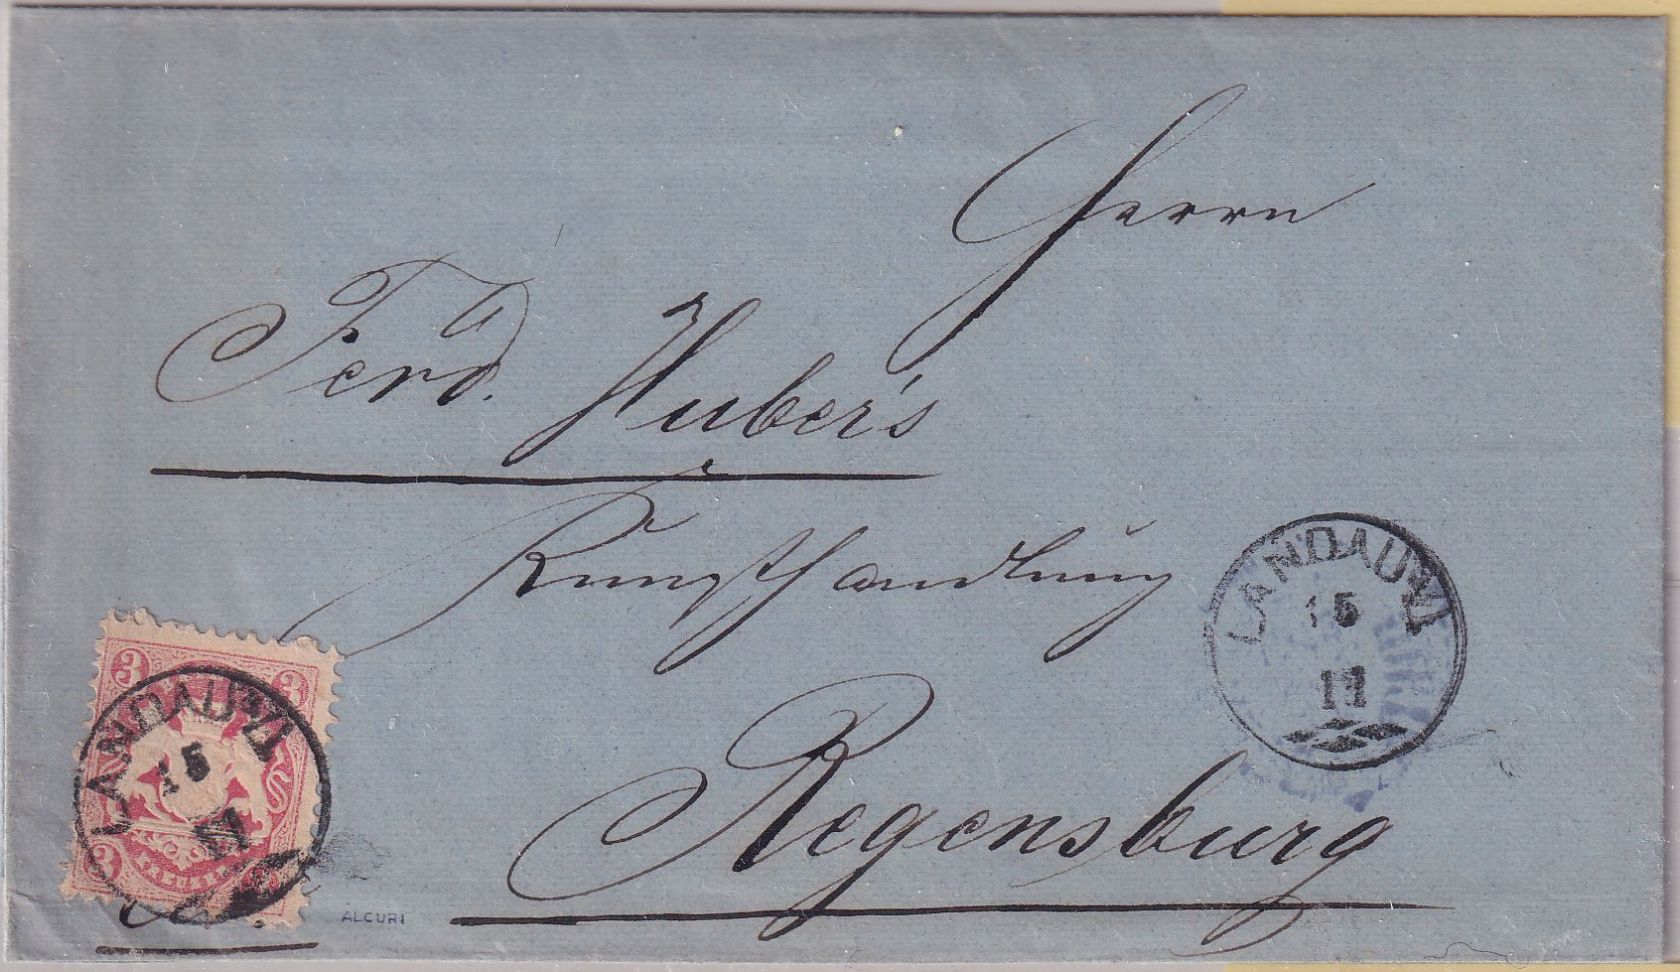 Herrn
Ferd. Huber's
Kunsthandlung
Regensburg
LANDAU a/I
15
11
3 3
LANDAU a/I
15
11
3
KREUZER
ALCURI